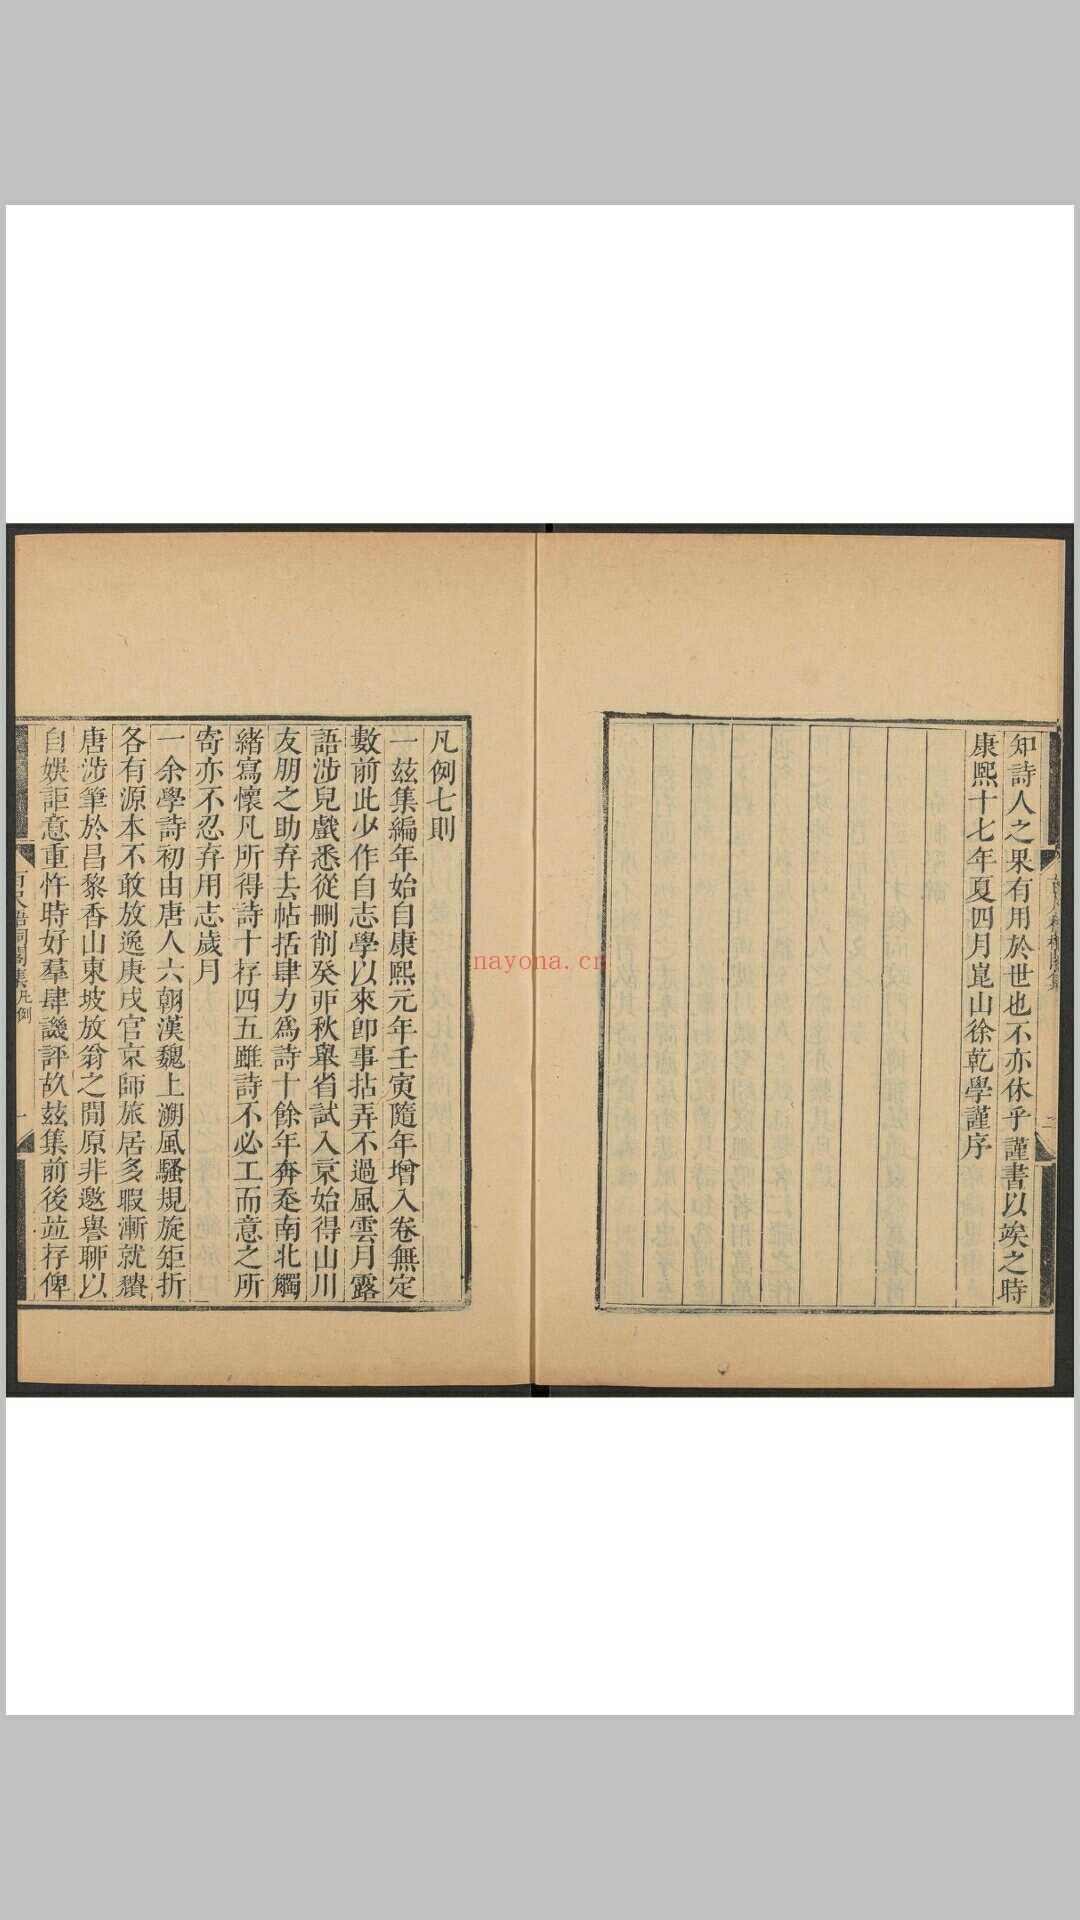 知詩人之果有用於世也不亦休乎謹書以竢之時
康熙十七年夏四月崑山徐乾學謹序
凡例七則
一茲集編年始自康熙元年壬寅隨年增入卷無定
數前此少作自志學以來卽事拈弄不過風雲月露
語涉兒戲悉從刪削癸丣秋舉省試入京始得山川
友朋之助弃去帖括肆力爲詩十餘年奔走南北觸
緒寫懷凡所得詩十存四五雖詩不必工而意之所
寄亦不忍弃用志歲月
一余學詩初由唐人六朝漢魏上溯風騷規旋矩折
各有源本不敢放逸庚戌官京師旅居多暇漸就頹
唐涉筆於昌黎香山東坡放翁之閒原非邀譽聊以
自娛詎意重忤時好羣肆譏評故茲集前後並存俾
集凡例
一
nayona.cn